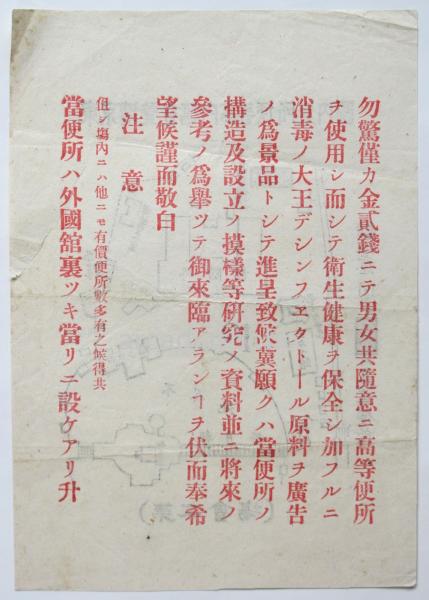 勿驚僅カ金貳錢ニテ男女共隨意ニ高等便所
ヲ使用シ而シテ衛生健康ヲ保全シ加フルニ
消毒ノ大王デシンフヱクトール原料ヲ廣告
ノ爲景品トシテ進呈致候冀願クハ當便所ノ
構造及設立ノ摸樣等硏究ノ資料並ニ將來ノ
參考ノ爲舉ツテ御來臨アランヿヲ伏而奉希
望候謹而敬白
注意
但シ塲內ニハ他ニモ有價便所數多有之候得共
當便所ハ外國館裏ツキ當リニ設ケアリ升